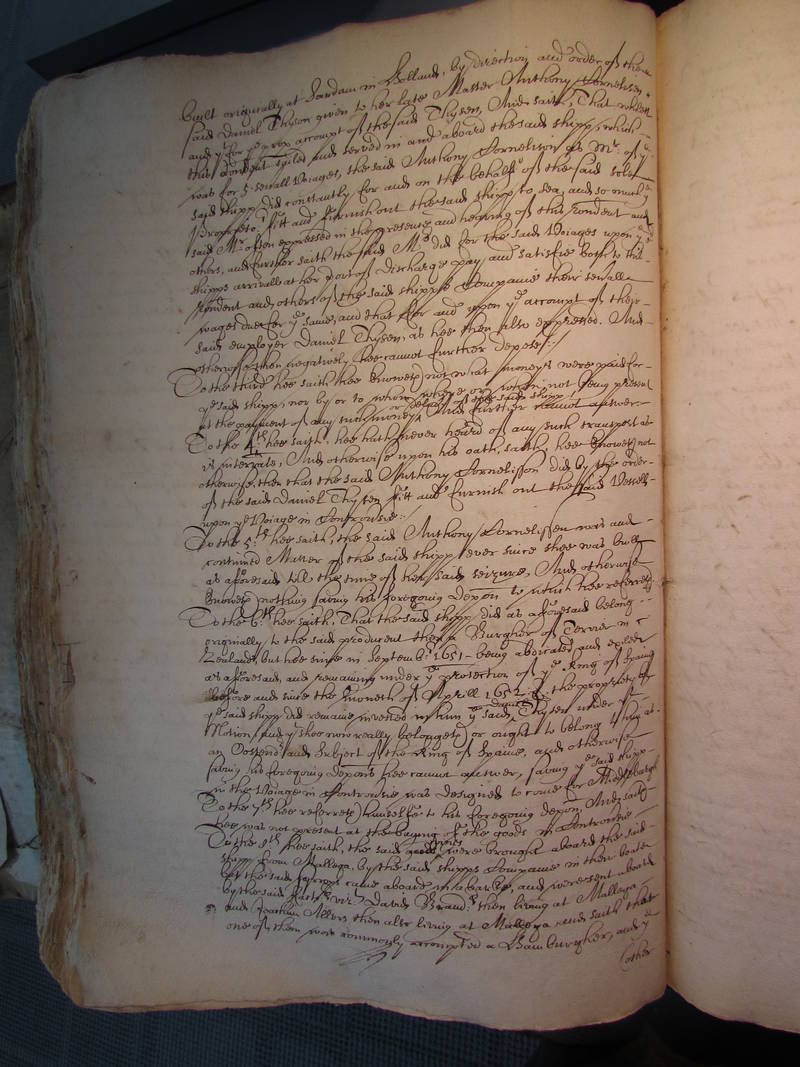 built originally at Sardam in Holland, by direction and order of the
said Daniel Thyson given to her late Master Anthony Cornelisen
and yt for ye prop accompt of the said Thysen, And saith, That whilest
this dept sailed and served in and aboard the said shipp, which
was for 5 severall Voiages, the said Anthony Cornelison as Mr. of ye
said shipp, did constantly for and on the behalfe of the said sole
Proprieto:r fitt and furnish out the said shipp to sea, and so much ye
said Mr. often expressed in the presence and hearing of this rendent and
others, and further saith the said Mr. did for the said Voiages upon ye
shipps arrivall at her port of discharge pay and satisfie both to this
rendent and others of the said shipps Companie their severall
wages due for ye same, and that for and upon ye accompt of their
said employer Daniel Thysen, as hee then also expressed. And
otherwise then negatively hee cannot further depose:/
To the third hee saith hee knoweth not what moneys were paid for
ye said shipp, nor by or to whom, where or when, not being present
at the payment of any such moneys or building of the said shipp And further cannot answer.
To the 4th hee saith, hee hath never heard of any such transport as
is interrate, And otherwise upon his oath, saith, hee knoweth not
otherwise, then that the said Anthony Cornelisson did by the order
of the said Daniel Thysen fitt and furnish out the said Vessell
upon ye Voiage in Controversie:/
To the 5:th hee saith, the said Anthony Cornelissen was and
continued Master of the said shipp ever since shee was built
as aforesaid till the time of her said seizure, And otherwise
knoweth nothing saving his foregoing depon to which hee referreth
To the 6th hee saith, That the said shipp did as aforesaid belong
originally to the said producent then a Burgher of Terver in
Zealand, but hee since in Septemb:r 1651 being abdicated and exiled
as aforesaid, and remaining under ye protection of ye King of Spaine
before and since the moneth of Aprill 1652 the propriety of
ye said shipp did remaine invested in him ye said Daniel Thysen under yt
Notion, and yt shee now really belongeth or ought to belong to him as
an Oostend and Subject of the King of Spaine, and otherwise
saving his foregoing depons hee cannot answer, saving ye said shipp
in the Voiage in Controversie was designed to come for Middleburgh
To the 7th hee referreth himselfe to his foregoing depon. And saith
hee was not present at the buying of the goods in Controversie
To the 8th hee saith, the said wines were brought aboard the said
shipp from Mallega, by the said shipps Companie in their boate
but the said came aboard in a barke, and were sent aboard
by the said factors viz:t David then living at Mallega
and Joachim Allers then also living at Mallega, and saith that
one of them was commonly accompted a Hamburgher, and ye
other